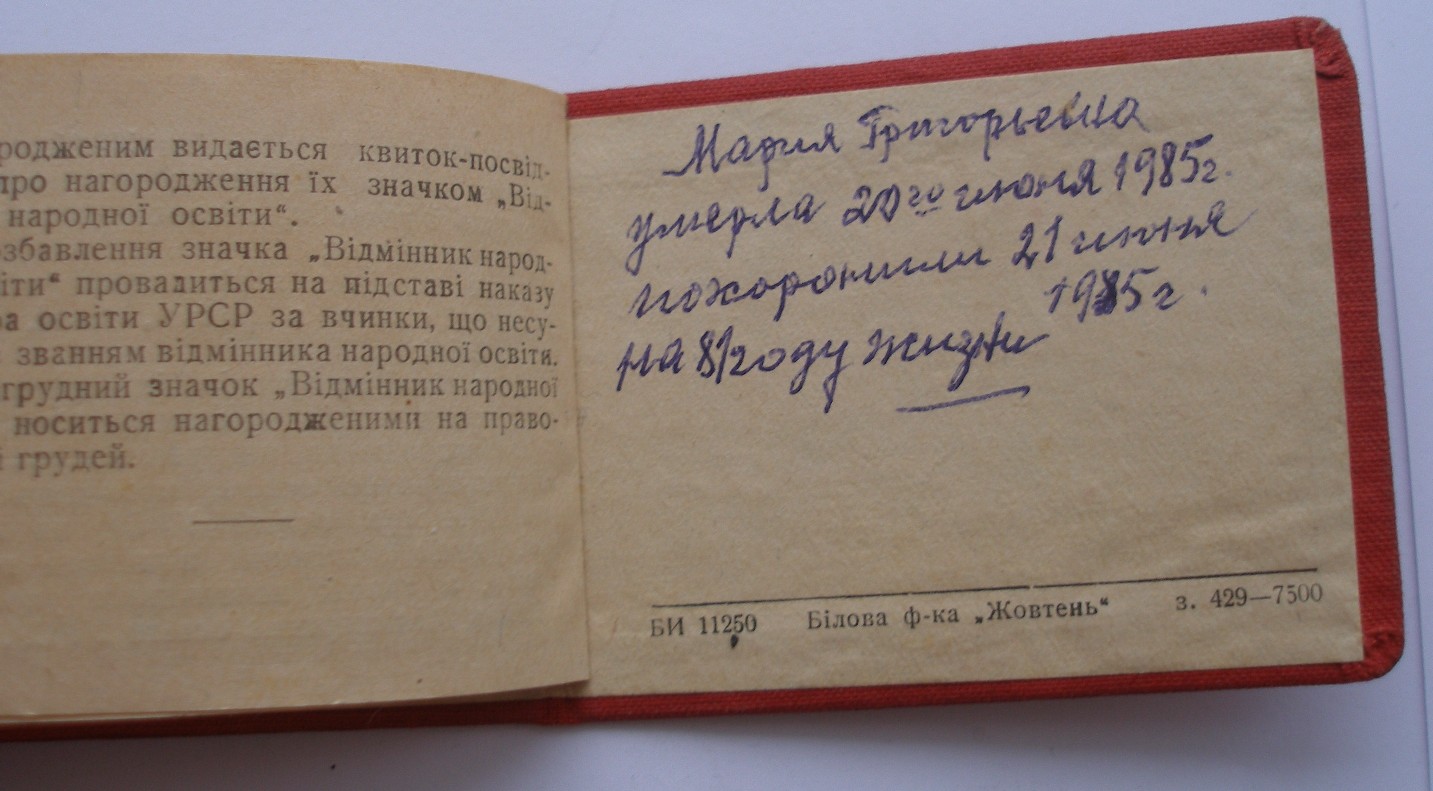 родженим видається квиток-посвід-
про нагородження їх значком „Від-
народної освіти“.
озбавлення значка „Відмінник народ-
іти“ провадиться на підставі наказу
ра освіти УРСР за вчинки, що несу-
з званням відмінника народної освіти.
грудний значок „Відмінник народної
носиться нагородженими на право-
й грудей.
Мария Григорьевна
умерла 20го июня 1985г.
похоронили 21 июня
1985г.
на 81 году жизни
БИ 11250 Білова ф-ка „Жовтень“ з. 429—7500